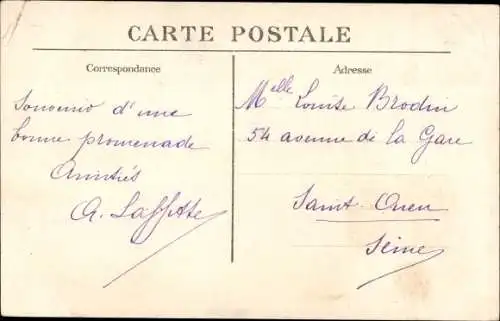 CARTE POSTALE
Correspondance
Souvenir d'une
bonne promenade
Amitiés
A. Laffitte
Adresse
Melle Louise Brodin
54 avenue de la Gare
Saint-Ouen
Seine